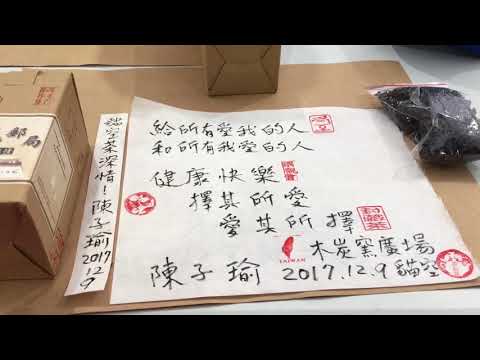 給所有愛我的人
和所有我愛的人
健康快樂
擇其所愛
愛其所擇
木炭窯廣場
陳子瑜 2017.12.9 貓空
TAIWAN
封藏茶
貓空茶深情！陳子瑜 2017 12 9
郵局